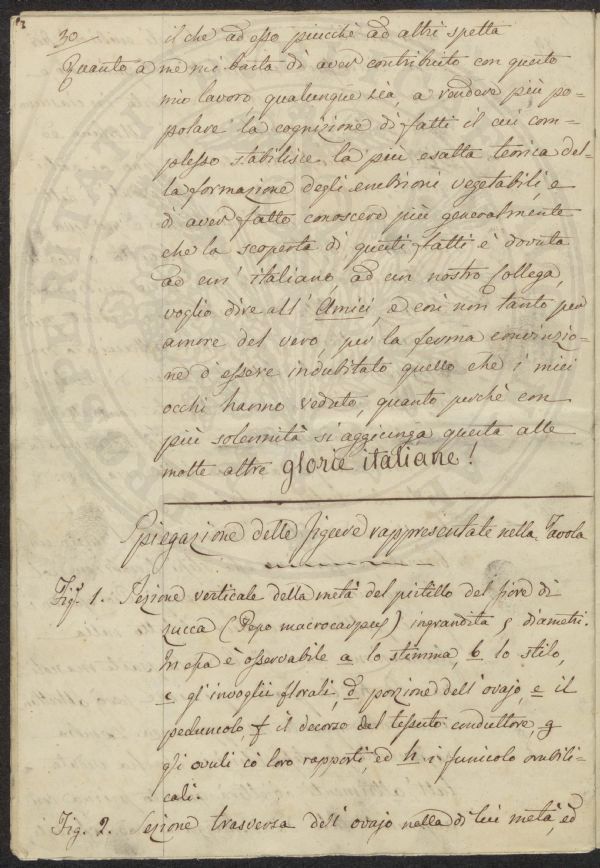 30
il che ad esso piucchè ad altri spetta
Quanto a me mi basta di aver contribuito con questo
mio lavoro qualunque sia, a rendere più po-
polare la cognizione di fatti il cui com-
plesso stabilisce la più esatta teorica del-
la formazione degli embrioni vegetabili, e
d'aver fatto conoscere più generalmente
che la scoperta di questi fatti è dovuta
ad un' italiano, ad un nostro Collega,
voglio dire all' Amici, e così non tanto per
amore del vero, per la ferma convinzio-
ne d'essere indubitato quello che i miei
occhi hanno veduto, quanto perchè con
più solennità si aggiunga questa alle
molte altre glorie italiane!
Spiegazione delle figure rappresentate nella Tavola
Figª. 1. Sezione verticale della metà del pistillo del fiore di
zucca (Pepo macrocarpus) ingrandita 5 diametri.
In essa è osservabile a lo stimma, b lo stilo,
c gl'invogli florali, d porzione dell'ovajo, e il
peduncolo, f il decorso del tessuto conduttore, g
gli ovuli cò loro rapporti, ed h i funicolo ombili-
cali.
Fig. 2. Sezione trasversa dell' ovajo nella di lui metà, ed